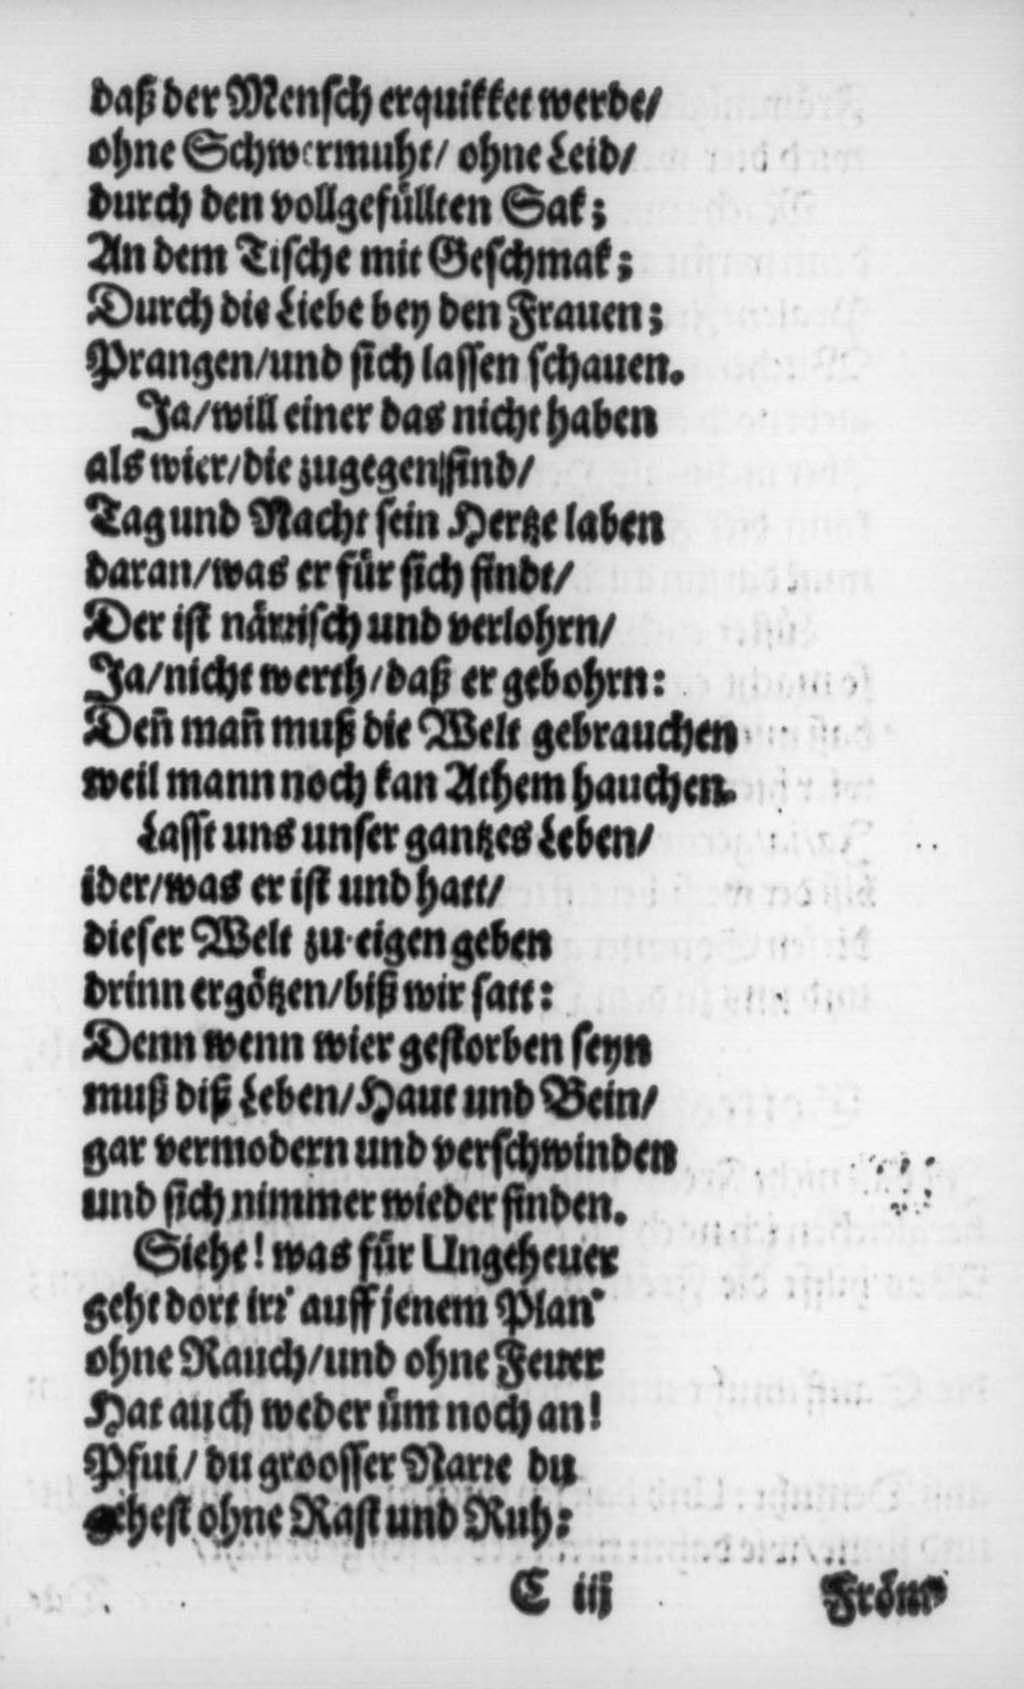 daß der Mensch erquikket werde/
ohne Schwermuht/ ohne Leid/
durch den vollgefüllten Sak;
An dem Tische mit Geschmak;
Durch die Liebe bey den Frauen;
Prangen/und sich lassen schauen.
Ja/will einer das nicht haben
als wier/die zugegen sind/
Tag und Nacht sein Hertze laben
daran/was er für sich findt/
Der ist närrisch und verlohrn/
Ja/nicht werth/daß er gebohrn:
Deñ mañ muß die Welt gebrauchen
weil mann noch kan Athem hauchen.
Lasst uns unser gantzes Leben/
ider/was er ist und hatt/
dieser Welt zu eigen geben
drinn ergötzen/biß wir satt:
Denn wenn wier gestorben seyn
muß diß Leben/Haut und Bein/
gar vermodern und verschwinden
und sich nimmer wieder finden.
Siehe! was für Ungeheuer
geht dort irr' auff jenem Plan
ohne Rauch/und ohne Feuer
Hat auch weder üm noch an!
Pfui/ du groosser Narre du
gehest ohne Rast und Ruh:
C iij Fröm-